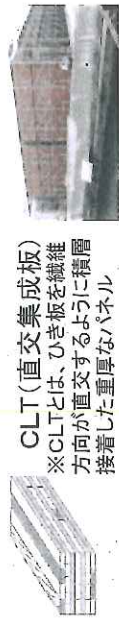 CLT(直交集成板)
※CLTとは、ひき板を繊維
方向が直交するように積層
接着した重厚なパネル